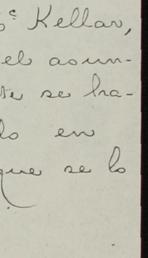 c Kellar,
el asun-
te se ha-
do en
que se lo